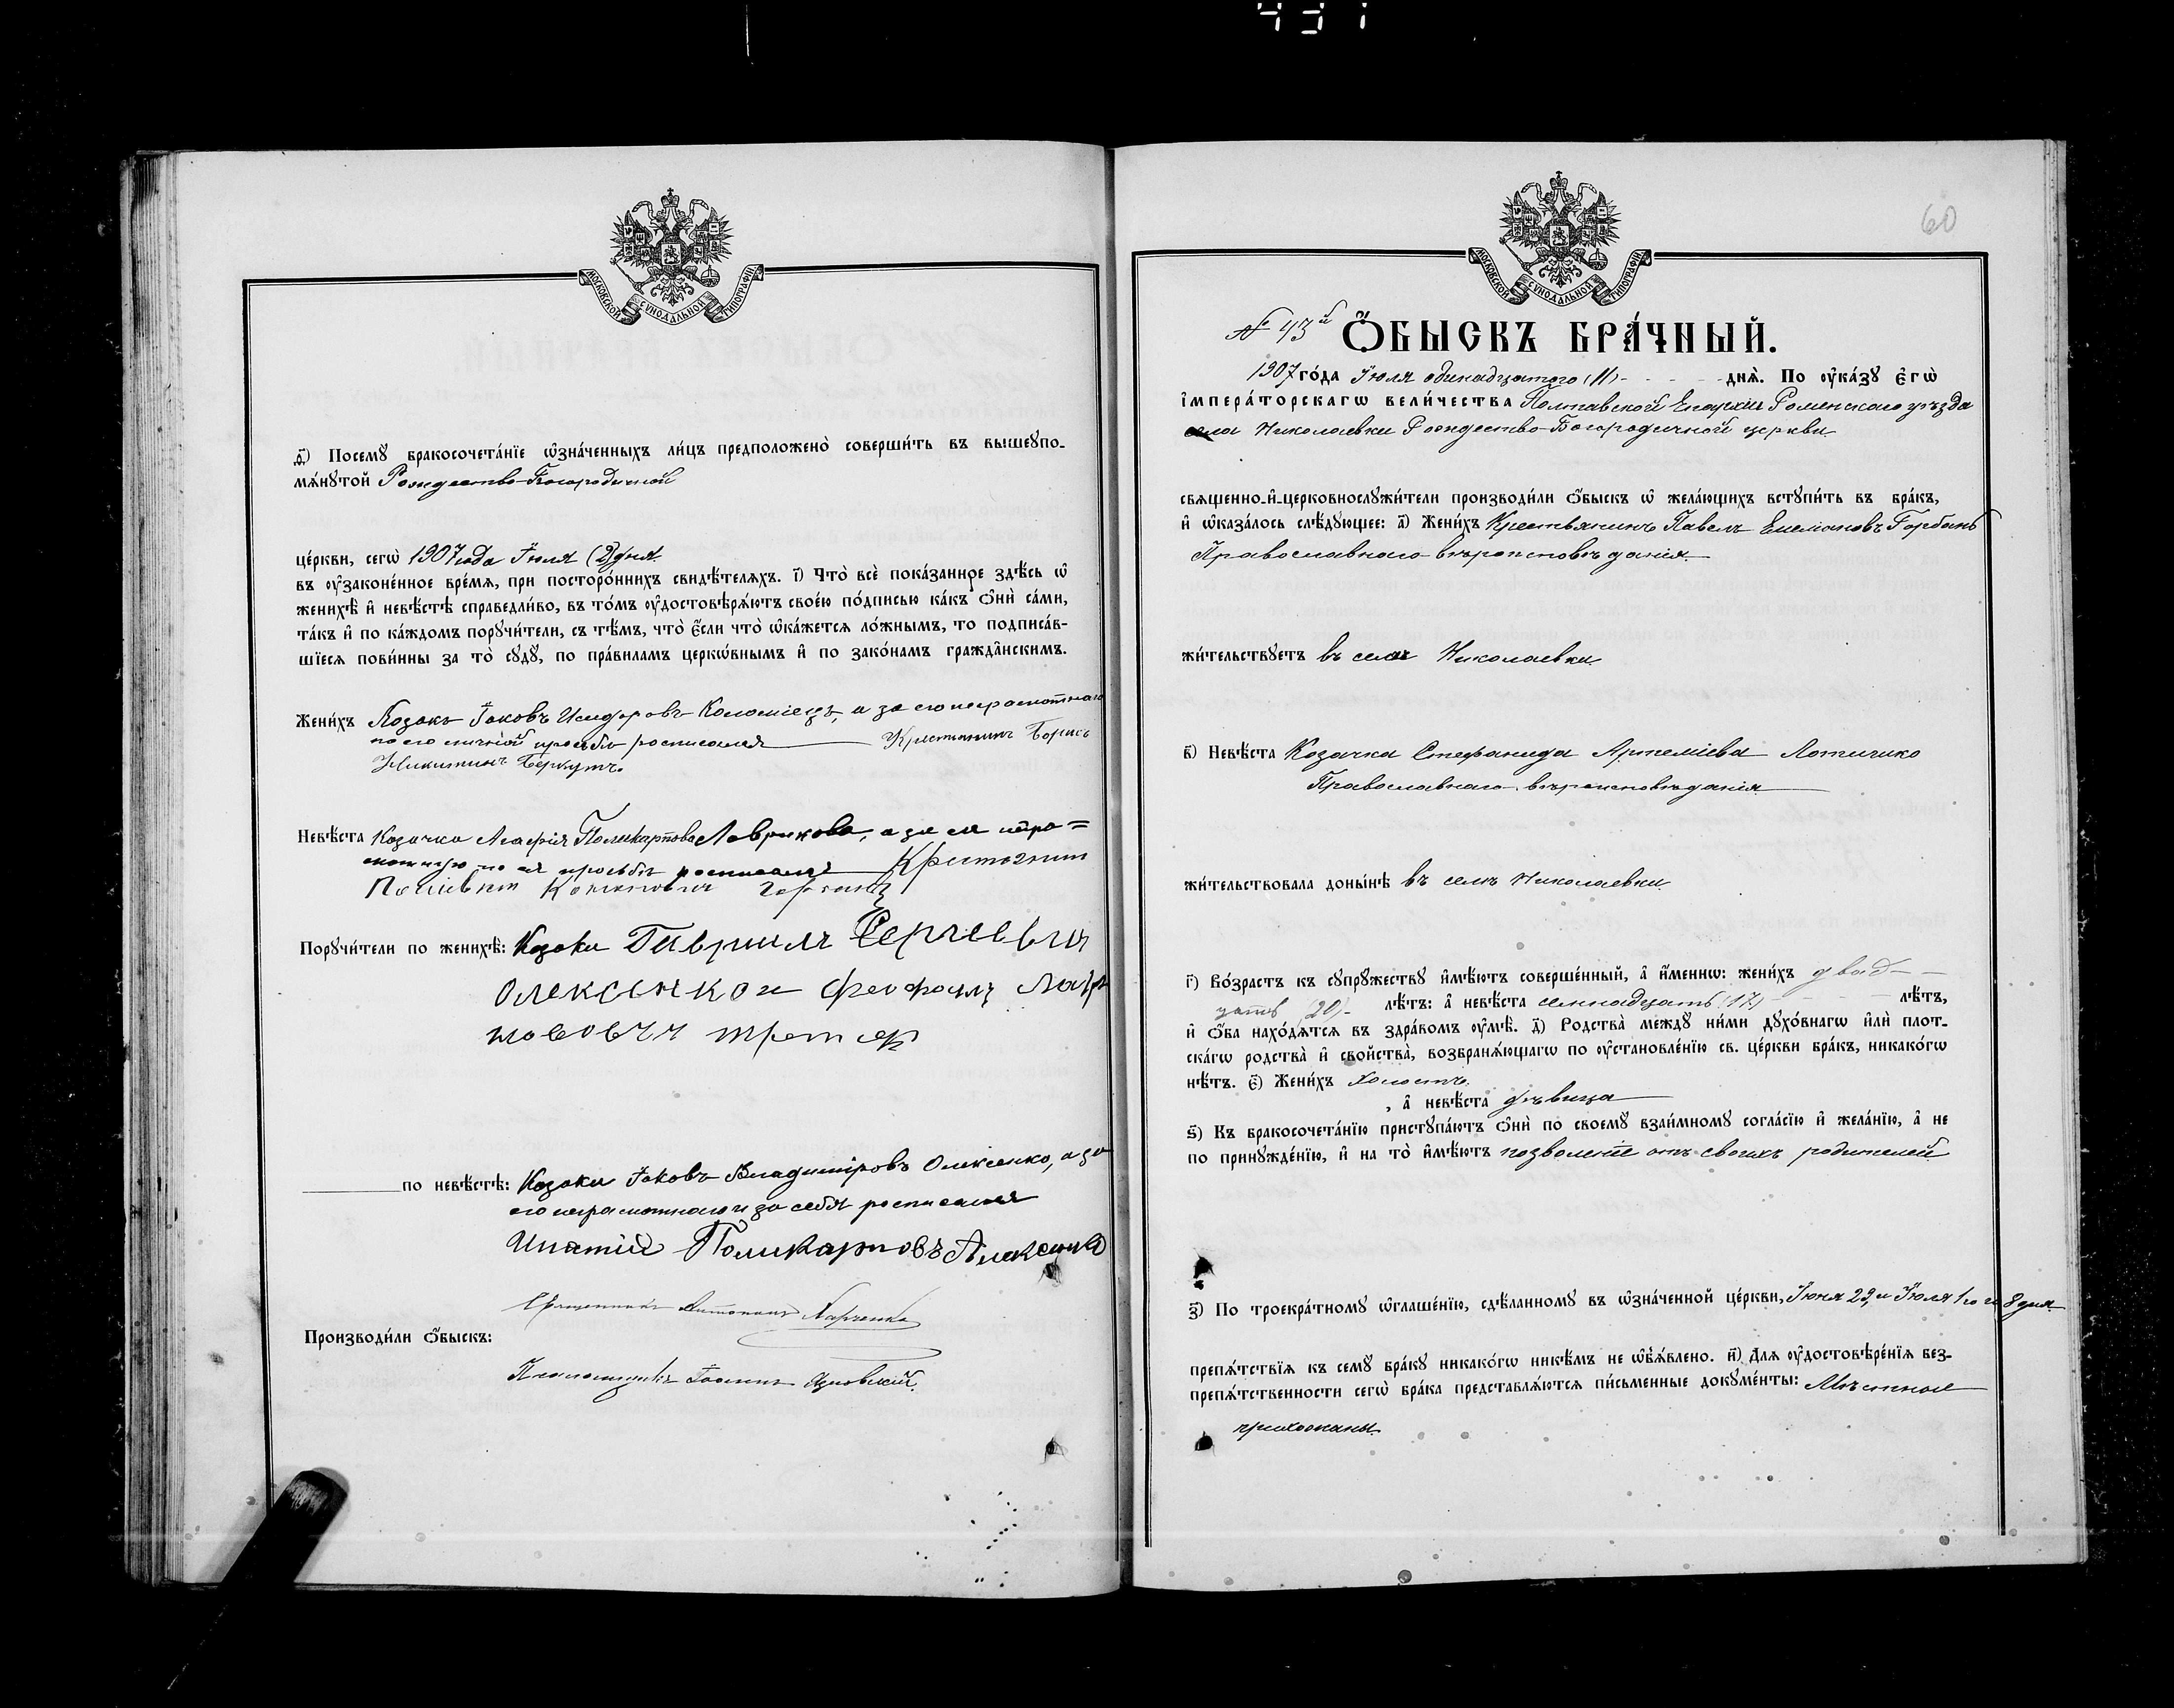 431
МОСКОВСКОЙ СѴНОДАЛЬНОЙ ТИПОГРАФІИ
Посемꙋ бракосочета́нїе ѡ҆зна́ченныхъ ли́цъ предположено̀ соверши́ть въ вышеꙋпо-
мѧ́нꙋтой Рождество-Богородичной
це́ркви, сегѡ̀ 1907 года Іюля (2) дня
въ ᲂу҆законе́нное вре́мѧ, при посторо́ннихъ свидѣ́телѧхъ. і҃) Что̀ всѐ пока́занное здѣ́сь ѡ҆
женихѣ̀ и҆ невѣ́стѣ справедли́во, въ то́мъ ᲂу҆достовѣрѧ́ютъ свое́ю по́дписью ка́къ ѻ҆нѝ са́ми,
та́къ и҆ по ка́ждомъ порꙋчи́тели, съ тѣ́мъ, что̀ є҆́сли что̀ ѡ҆ка́жетсѧ ло́жнымъ, то подписа́в-
шїесѧ пови́нны за то̀ сꙋдꙋ̀, по пра́виламъ церкѡ́внымъ и҆ по зако́намъ гражда̑нскимъ.
Жени́хъ Козакъ Іаковъ Исидоровъ Коломіецъ, а за его неграмотнаго
по его личной просьбѣ росписался Крестьянинъ Борисъ
Никитинъ Беркутъ
Невѣ́ста Козачка Агафія Поликарпова Лаврикова, а за ея негра=
мотную по ея просьбѣ росписался
Порꙋчи́тели по женихѣ̀: Козаки Гавриилъ Сергеевич
Олексенко и Феофилъ
по невѣ́стѣ: Козаки Іаковъ Владиміровъ Олексенко, а за
его неграмотнаго и за себя росписался
Ипатій Поликарповъ Алексенко
Священникъ Харченко
Производи́ли ѻ҆́быскъ:
Псаломщикъ Іоаннъ
60
МОСКОВСКОЙ СѴНОДАЛЬНОЙ ТИПОГРАФІИ
№ 43й Ѻ҆́БЫСКЪ БРА́ЧНЫЙ.
1907 го́да Іюля одинадцатого (11) днѧ̀. По ᲂу҆ка́зꙋ є҆гѡ̀
і҆мпера́торскагѡ вели́чества Полтавской Епархіи Роменскаго уѣзда
села Николаевки Рождество-Богородичной церкви
свѧщенно-и҆-церковнослꙋжи́тели производи́ли ѻ҆́быскъ ѡ҆ жела́ющихъ встꙋпи́ть въ бра́къ,
и҆ ѡ҆каза́лось слѣ́дꙋющее: а҃) Жени́хъ Крестьянинъ Павелъ Емельяновъ Горбань
Православнаго вѣроисповѣданія
жи́тельствꙋетъ въ селѣ Николаевки
в҃) Невѣ́ста Козачка Стефанида Артеміева
Православнаго вѣроисповѣданія
жи́тельствовала доны́нѣ въ селѣ Николаевки
г҃) Во́зрастъ къ сꙋпрꙋ́жествꙋ и҆мѣ́ютъ соверше́нный, а҆ и҆́менно: жени́хъ двад-
цать (20) лѣ́тъ: а҆ невѣ́ста семнадцать (17) лѣ́тъ,
и҆ ѻ҆́ба нахо́дѧтсѧ въ здра́вомъ ᲂу҆мѣ̀. д҃) Родства̀ междꙋ ни́ми дꙋхо́внагѡ и҆лѝ плот-
ска́гѡ родства̀ и҆ сво́йства, возбранѧ́ющагѡ по ᲂу҆становле́нїю св. це́ркви бра́къ, никако́гѡ
нѣ́тъ. є҃) Жени́хъ холостъ
, а҆ невѣ́ста дѣвица
ѕ҃) Къ бракосочета́нїю пристꙋпа́ютъ ѻ҆нѝ по своемꙋ̀ взаи́мномꙋ согла́сїю и҆ жела́нїю, а҆ не
по принꙋжде́нїю, и҆ на то̀ и҆мѣ́ютъ позволеніе отъ своихъ родителей
з҃) По троекра́тномꙋ ѡ҆глаше́нїю, сдѣ́ланномꙋ въ ѡ҆зна́ченной це́ркви, Іюня 29, и Іюля 1го и 8 дня
препѧ́тствїѧ къ семꙋ̀ бра́кꙋ никако́гѡ никѣ́мъ не ѡ҆б̾ѧ́влено. и҃) Длѧ ᲂу҆достовѣре́нїѧ без-
препѧ́тственности сегѡ̀ бра́ка представлѧ́ютсѧ пи́сьменные докꙋме́нты: Мѣстные
прихожаны